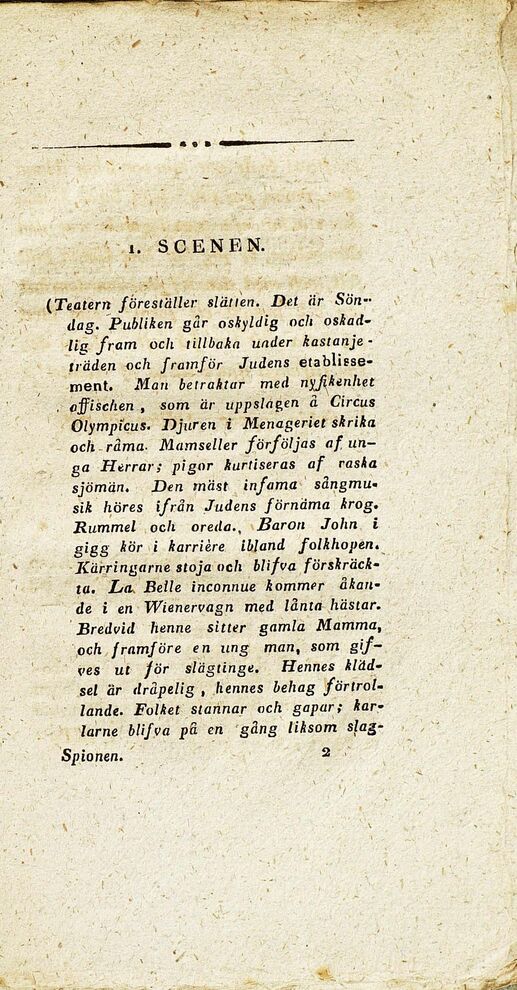 1. SCENEN.
(Teatern föreställer slätten. Det är Sön-
dag. Publiken går oskyldig och oskad-
lig fram och tillbaka under kastanje-
träden och framför Judens etablisse-
ment. Man betraktar med nyfikenhet
affischen, som är uppslagen å Circus
Olympicus. Djuren i Menageriet skrika
och råma. Mamseller förföljas af un-
ga Herrar; pigor kurtiseras af raska
sjömän. Den mäst infama sångmu-
sik höres ifrån Judens förnäma krog.
Rummel och oreda., Baron John i
gigg kör i karrière ibland folkhopen.
Kärringarne stoja och blifva förskräck-
ta. La Belle inconnue kommer åkan-
de i en Wienervagn med lånta hästar.
Bredvid henne sitter gamla Mamma,
och framföre en ung man, som gif-
ves ut för slägtinge. Hennes kläd-
sel är dråpelig, hennes behag förtrol-
lande. Folket stannar och gapar; kar-
larne blifva på en gång liksom slag-
Spionen. 2